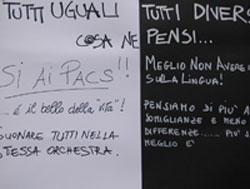 TUTTI UGUALI
COSA NE
SI Ai PACS!!
... é il bello della "vita"!
SUONARE TUTTI NELLA
STESSA ORCHESTRA.
TUTTI DIVERS
PENSI...
MEGLIO NON AVERE
SULLA LINGUA!
PENSIAMO DI PIU' A
SOMIGLIANZE E MENO
DIFFERENZE..... PIU' SI
MEGLIO E'